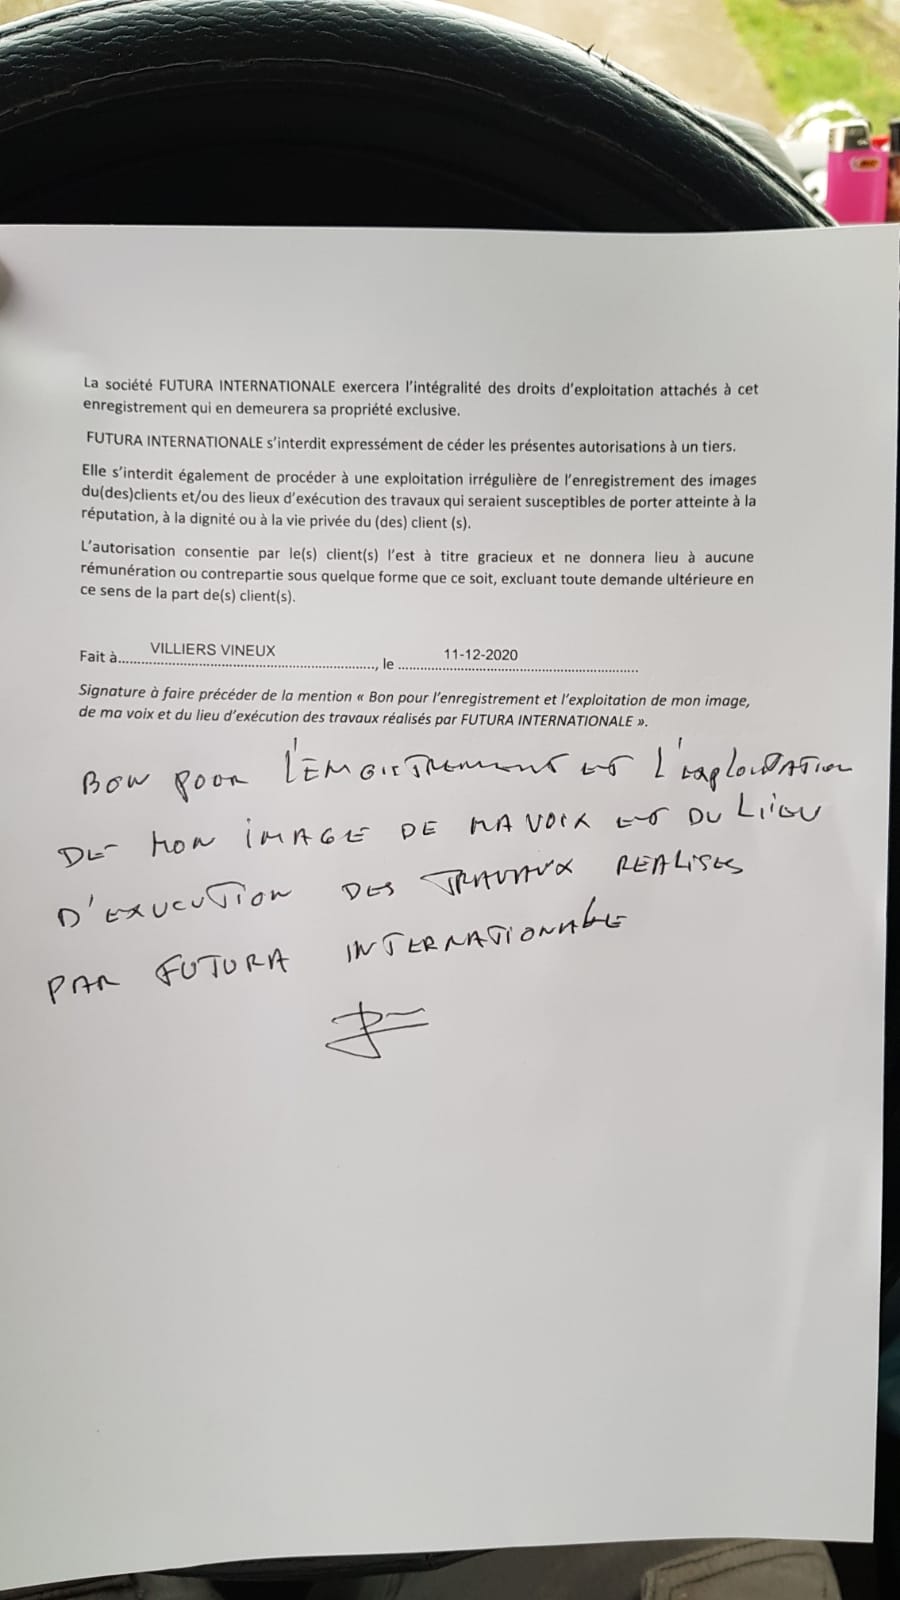 La société FUTURA INTERNATIONALE exercera l'intégralité des droits d'exploitation attachés à cet
enregistrement qui en demeurera sa propriété exclusive.
FUTURA INTERNATIONALE s'interdit expressément de céder les présentes autorisations à un tiers.
Elle s'interdit également de procéder à une exploitation irrégulière de l'enregistrement des images
du(des)clients et/ou des lieux d'exécution des travaux qui seraient susceptibles de porter atteinte à la
réputation, à la dignité ou à la vie privée du (des) client (s).
L'autorisation consentie par le(s) client(s) l'est à titre gracieux et ne donnera lieu à aucune
rémunération ou contrepartie sous quelque forme que ce soit, excluant toute demande ultérieure en
ce sens de la part de(s) client(s).
Fait à VILLIERS VINEUX, le 11-12-2020
Signature à faire précéder de la mention « Bon pour l'enregistrement et l'exploitation de mon image,
de ma voix et du lieu d'exécution des travaux réalisés par FUTURA INTERNATIONALE ».
BON POUR L'ENGISTREMENT ET L'exploitATION
DE MON IMAGE DE MA VOIX ET DU LIEU
D'EXUCUTION DES TRAVAUX REALISES
PAR FUTURA INTERNATIONALE
BIC